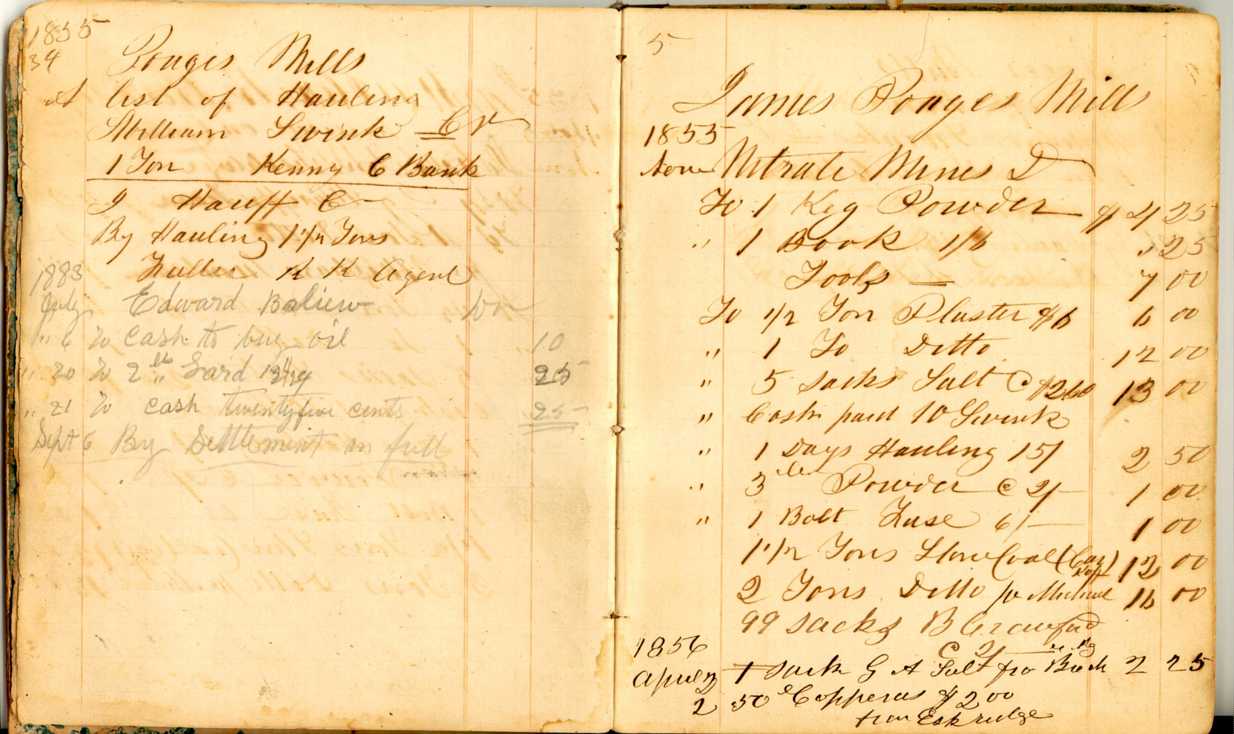 1855
34
Poages Mills
list of Hauling
William Swink Cr
1 Ton Kenny C Bank
J Hauff C
By Hauling 1 1/2 Tons
R R Agent
1883
July Edward Baliew Dr
" 6 To cash to buy oil 10
" 20 To 2 lb Lard 25
" 21 To cash twentyfive cents 25
Sept 6 By Settlement in full
5
James Poages Mill
1855
Nov Nitrate Mines D
To 1 Keg Powder $ 4 25
" 1 Book 1/6 " 25
Tools — 7 00
To 1/2 Ton Plaster 6 00
" 1 To Ditto 12 00
" 5 sacks Salt @ $2.60 13 00
" Cash paid to Swink
" 1 Days Hauling 15/ 2 50
" 3 lbs Powder @ 2/— 1 00
" 1 Bolt Fuse 6/— 1 00
1 1/2 Tons Stone Coal 12 00
2 Tons Ditto pr 16 00
99 sacks B Crawford
1856
April 1 sack G A Salt 2 25
2 50 Copperas $2.00
from Eskridge